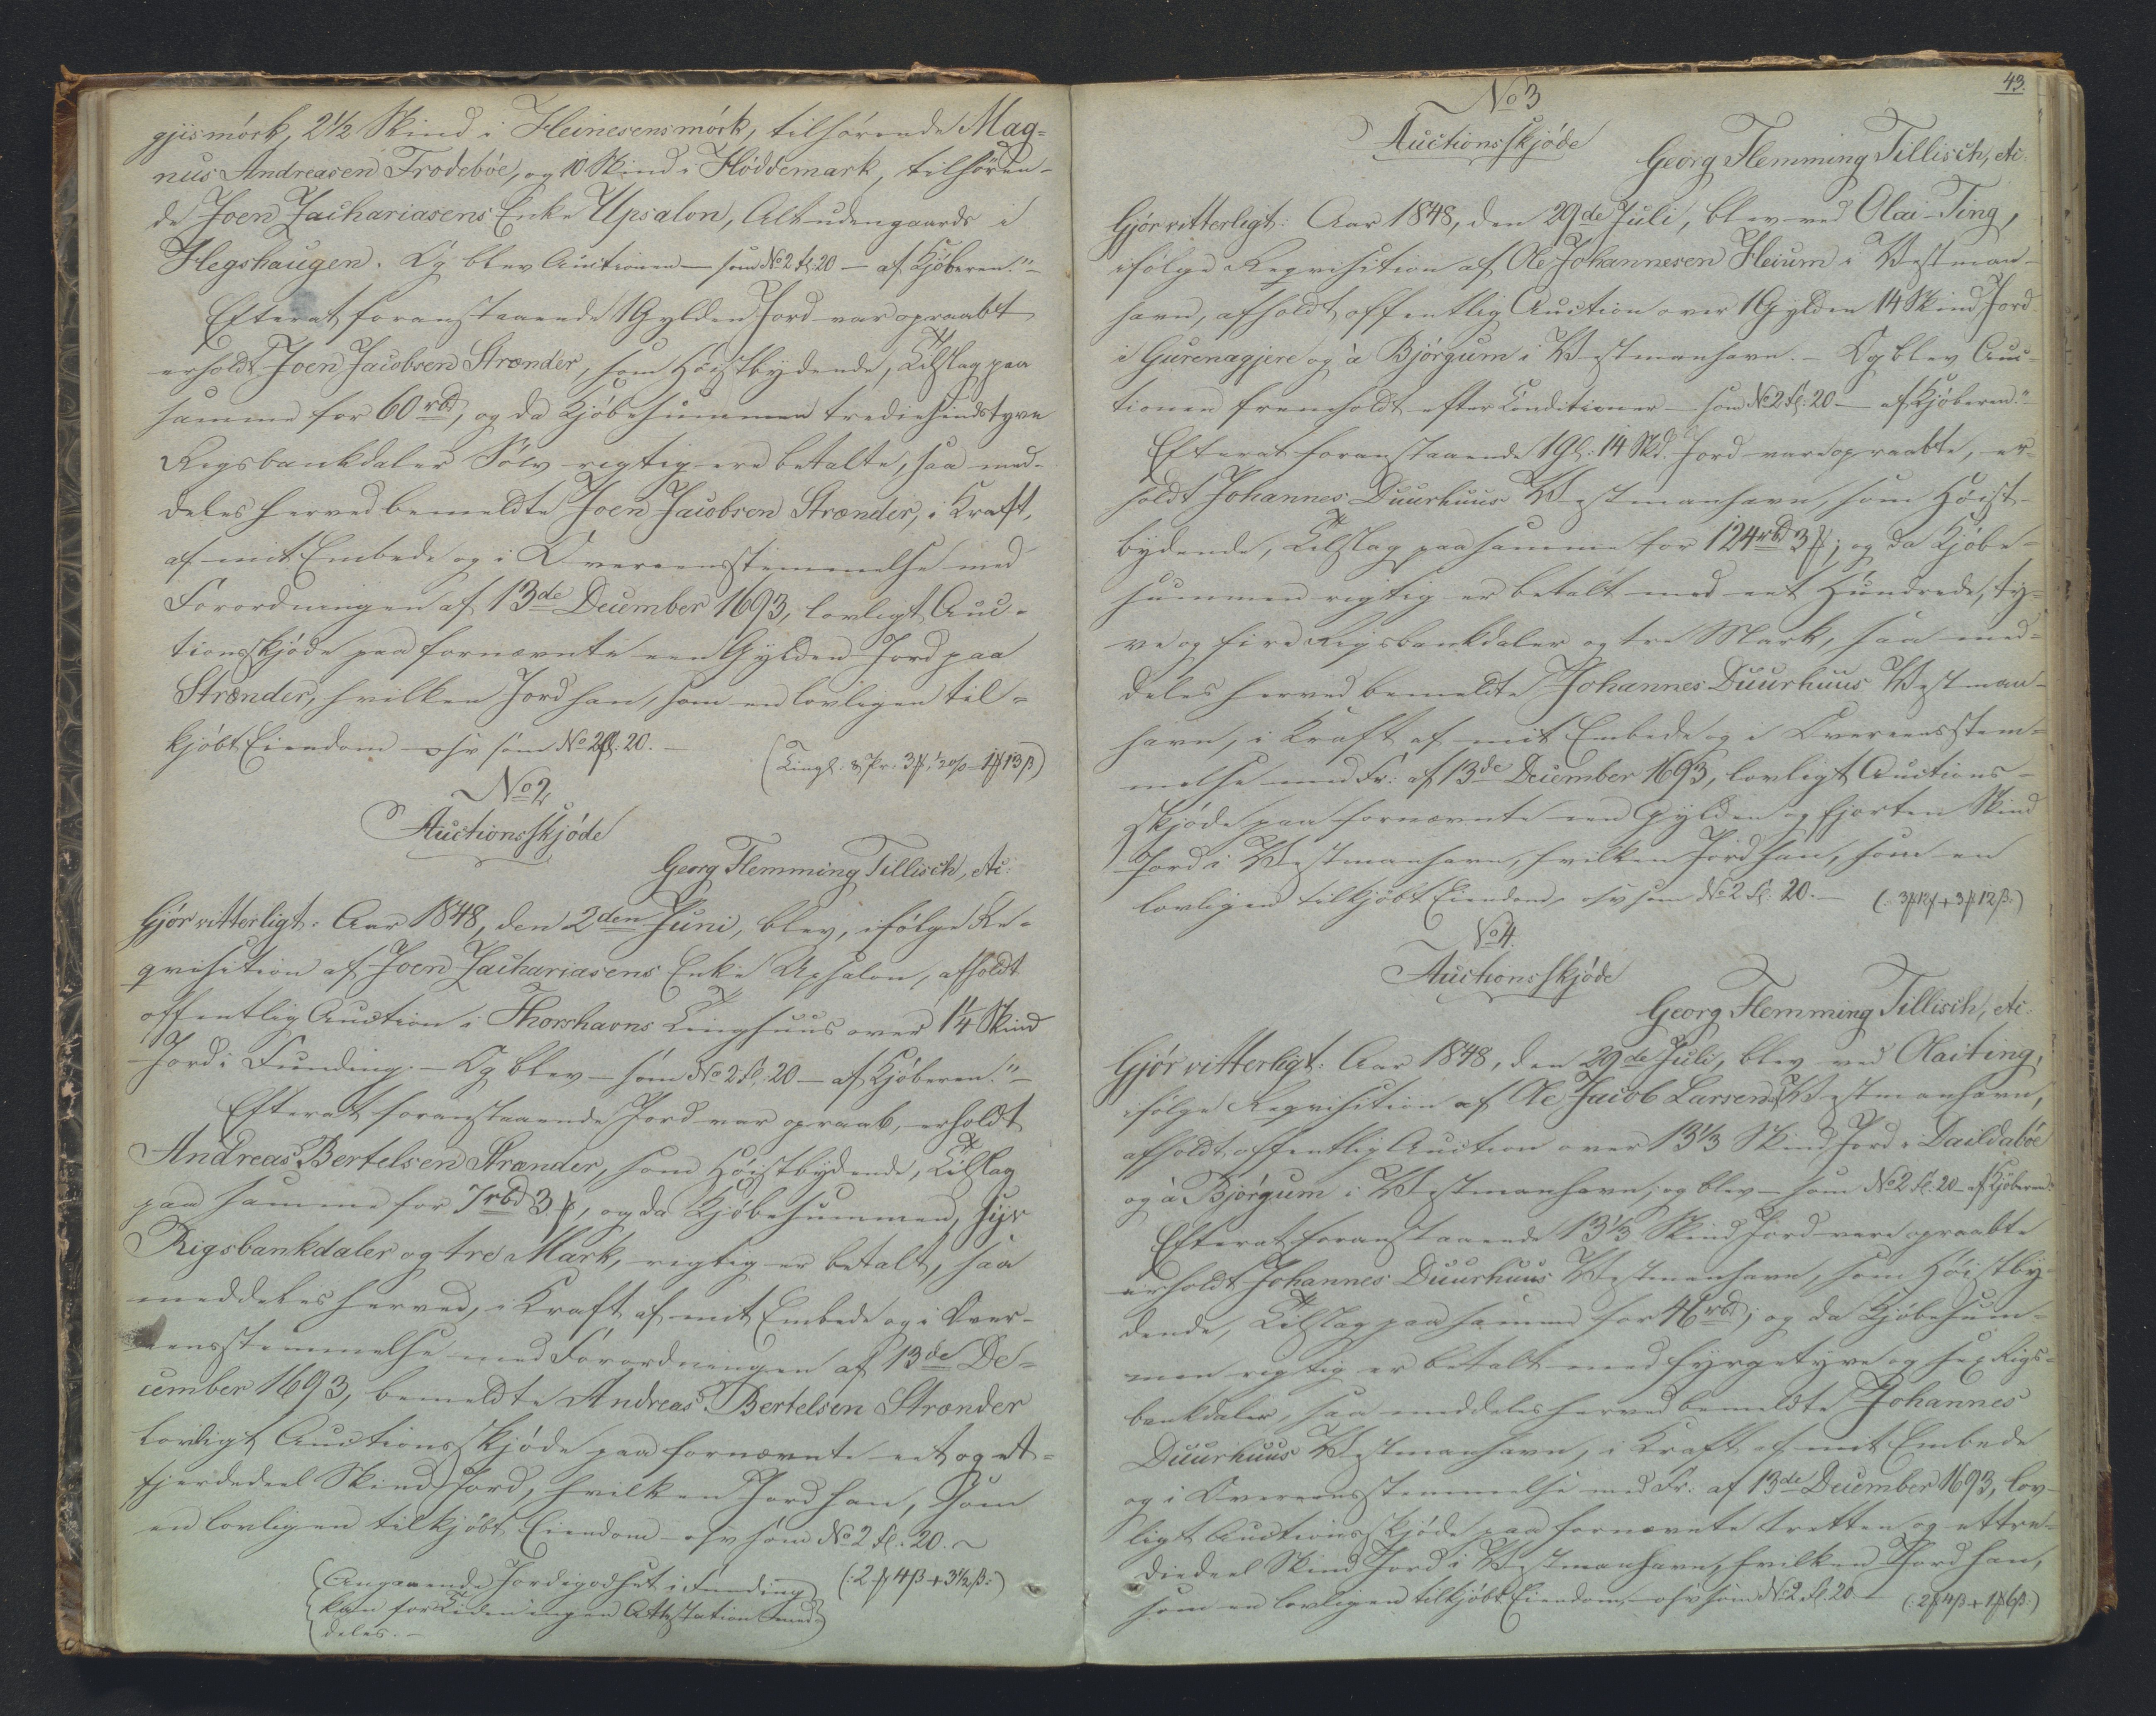 gjismørk, 2½ Skind i Heinesensmørk, tilhørende Mag-
nus Andreasen Frodebøe, og 10 Skind i Høddemark, tilhøren-
de Joen Zachariasens Enke Upsalon, Alt udengaards i
Hegshaugen. Og blev Auctionen — som No 2 fl: 20 — af Kjøberen."—
Efterat foranstaaende 1 Gylden Jord var opraabt
erholdt Joen Jacobsen Strænder, som Høistbydende, Tilslag paa
samme for 60 rbd, og da Kjøbesummen trediesindstyve
Rigsbankdaler Sølv rigtig ere betalte, saa med-
deles herved bemeldte Joen Jacobsen Strænder, i Kraft,
af mit Embede og i Overeensstemmelse med
Forordningen af 13de December 1693, lovligt Auc-
tionsskjøde paa fornævnte een Gylden Jord paa
Strænder, hvilken Jord han, som en lovligen til-
kjøbt Eiendom — osv som No 2 fl: 20. —
(Tingl: & Pr. 3 ½ % 1 13 β)
No 2
Auctionsskjøde
Georg Flemming Tillisch, etc:
Gjør vitterligt: Aar 1848, den 2den Juni, blev, ifølge Re-
qvisition af Joen Zachariasens Enke Upsalon, afholdt
offentlig Auction i Thorshavns Tinghuus over 1¼ Skind
Jord i Funding. — Og blev — som No 2 fl: 20 — af Kjøberen."—
Efterat foranstaaende Jord var opraab, erholdt
Andreas Bertelsen Strænder, som Høistbydende, Tilslag
paa samme for 7 rbd 3 , og da Kjøbesummen, syv
Rigsbankdaler og tre Mark, rigtig er betalt, saa
meddeles herved, i Kraft af mit Embede og i Over-
eensstemmelse med Forordningen af 13de De-
cember 1693, bemeldte Andreas Bertelsen Strænder
lovligt Auctionsskjøde paa fornævnte eet og et-
fjerdedeel Skind Jord, hvilken Jord han, som
en lovligen tilkjøbt Eiendom — osv som No 2 fl: 20. —
(: 2 4 β + 3½ β:)
(Angaaende Jordegodset i Funding
kan for Tiden ingen Attestation med-
deles. —
43.
No 3
Auctionsskjøde
Georg Flemming Tillisch, etc
Gjør vitterligt: Aar 1848, den 29de Juli, blev ved Olai-Ting,
ifølge Reqvisition af Ole Johannesen Heium i Vestman-
havn, afholdt offentlig Auction over 1 Gylden 14 Skind Jord
i Gurenagjere og à Bjørgum i Vestmanhavn. — Og blev Auc-
tionen fremholdt efter Conditioner — som No 2 fl: 20 — af Kjøberen."
Efterat foranstaaende 1 Gl: 14 Skd. Jord vare opraabte, er-
holdt Johannes Duurhuus Vestmanhavn, som Høist-
bydende, Tilslag paa samme for 124 rbd 3 ; og da Kjøbe-
summen rigtig er betalt med eet Hundrede, ty-
ve og fire Rigsbankdaler og tre Mark, saa med-
deles herved bemeldte Johannes Duurhuus Vestman-
havn, i Kraft af mit Embede og i Overeensstem-
melse med Fr: af 13de December 1693, lovligt Auctions-
skjøde paa fornævnte een Gylden og fjorten Skind
Jord i Vestmanhavn, hvilken Jord han, som en
lovligen tilkjøbt Eiendom, osv som No 2 fl: 20. —
(: 3 12 + 3 12 β:)
No 4.
Auctionsskjøde
Georg Flemming Tillisch, etc:
Gjør vitterligt: Aar 1848, den 29de Juli, blev ved Olaiting,
ifølge Reqvisition af Ole Jacob Larsen Vestmanhavn,
afholdt offentlig Auction over 13⅓ Skind Jord i Daildabøe
og à Bjørgum i Vestmanhavn; og blev — som No 2 fl: 20 — af Kjøberen"
Efterat foranstaaende 13⅓ Skind Jord vare opraabte
erholdt Johannes Duurhuus Vestmanhavn, som Høistby-
dende, Tilslag paa samme for 46 rbd; og da Kjøbesum-
men rigtig er betalt med fyrgetyve og sex Rigs-
bankdaler, saa meddeles herved bemeldte Johannes
Duurhuus Vestmanhavn, i Kraft af mit Embede
og i Overeensstemmelse med Fr: af 13de December 1693, lov-
ligt Auctionsskjøde paa fornævnte tretten og ettre-
diedeel Skind Jord i Vestmanhavn, hvilken Jord han,
som en lovligen tilkjøbt Eiendom, — osv som No 2 fl: 20. —
(: 2 4 β + 1 6 β:)